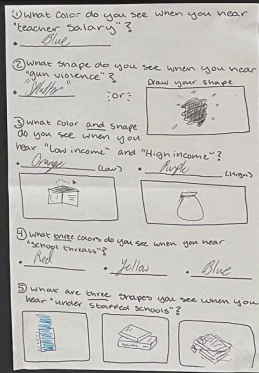 ① What color do you see when you hear
"teacher salary"?
• Blue
② What shape do you see when you hear
"gun violence"?
:or:
Draw your shape
③ What color and shape
do you see when you
hear "low income" and "High income"?
• Orange (Low) • Purple (High)
④ What three colors do you see when you hear
"school threats"?
• Red • Yellow • Blue
⑤ What are three shapes you see when you
hear "under staffed schools"?